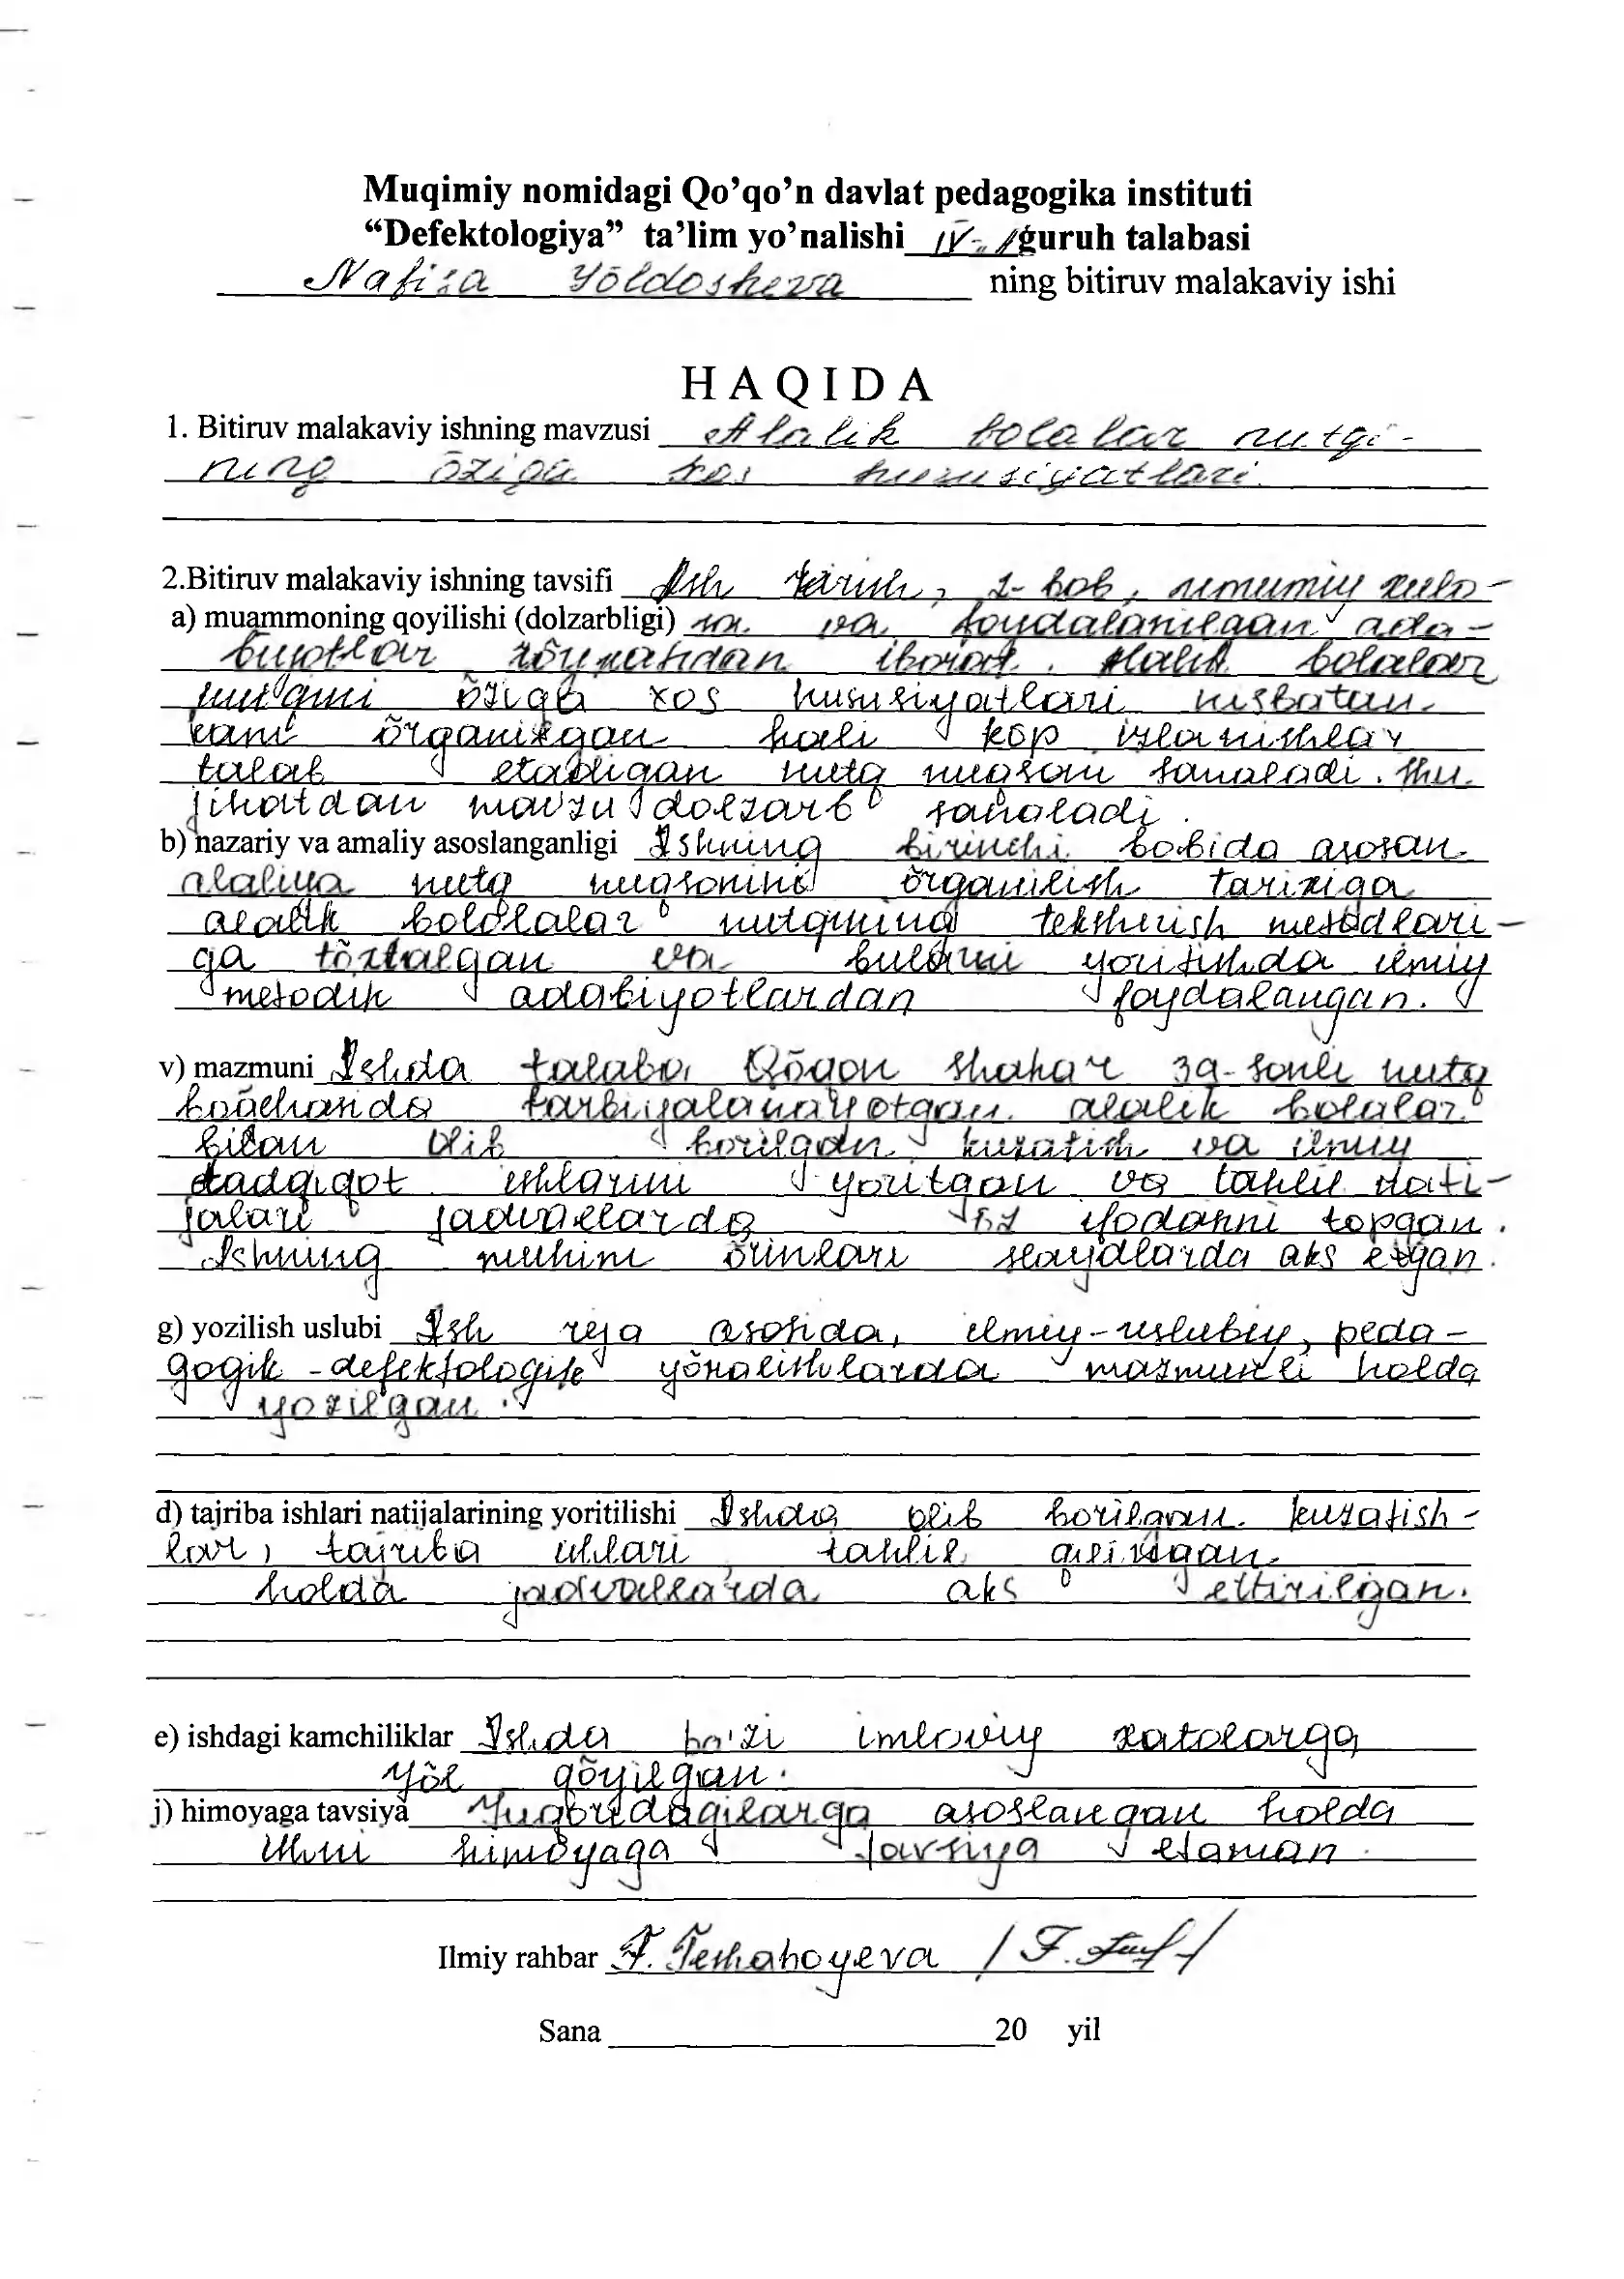 Muqimiy nomidagi Qo’qo’n davlat pedagogika instituti
“Defektologiya” ta’lim yo’nalishi IV- guruh talabasi
Nafisa Yõldosheva ning bitiruv malakaviy ishi
HAQIDA
1. Bitiruv malakaviy ishning mavzusi Alalik bolalar nutqi-
ning õziga xos hususiyatlari.
2.Bitiruv malakaviy ishning tavsifi Ish kirish, 2- bob, umumiy xulo-
a) muammoning qoyilishi (dolzarbligi) sa va foydalanilgan ada-
biyotlar rõyxatidan iborat. Alalik bolalar
nutqini õziga xos hususiyatlari nisbatan
kam õrganilgan hali kõp izlanishlar
talab etadigan nutq nuqsoni sanaladi. Shu
jihatdan mavzu dolzarb sanaladi.
b) nazariy va amaliy asoslanganligi Ishning birinchi bobida asosan
alaliya nutq nuqsonini õrganilish tarixiga
alalik bololalar nutqining tekshirish metodlari-
ga tõxtalgan va bularni yoritishda ilmiy
metodik adabiyotlardan foydalangan.
v) mazmuni Ishda talaba Qõqon shahar 39-sonli nutq
boğchanda tarbiyalanayotgan alalik bolalar
bilan olib borilgan kuzatish va ilmiy
tadqiqot ishlarini yoritgan va tahlil nati-
jalari jadvallarda õz ifodasini topgan.
Ishning muhim õrinlari slaydlarda aks etgan.
g) yozilish uslubi Ish reja asosida, ilmiy-uslubiy, peda-
gogik-defektologik yõnalishlarda mazmunli holda
yozilgan.
d) tajriba ishlari natijalarining yoritilishi Ishda olib borilgan kuzatish-
lar, tajriba ishlari tahlil qilingan
holda jadvallarda aks ettirilgan.
e) ishdagi kamchiliklar Ishda ba'zi imloviy xatolarga
yõl qõyilgan.
j) himoyaga tavsiya Yuqoridagilarga asoslangan holda
ishni himoyaga tavsiya etaman.
Ilmiy rahbar F. Teshaboyeva
Sana 20 yil